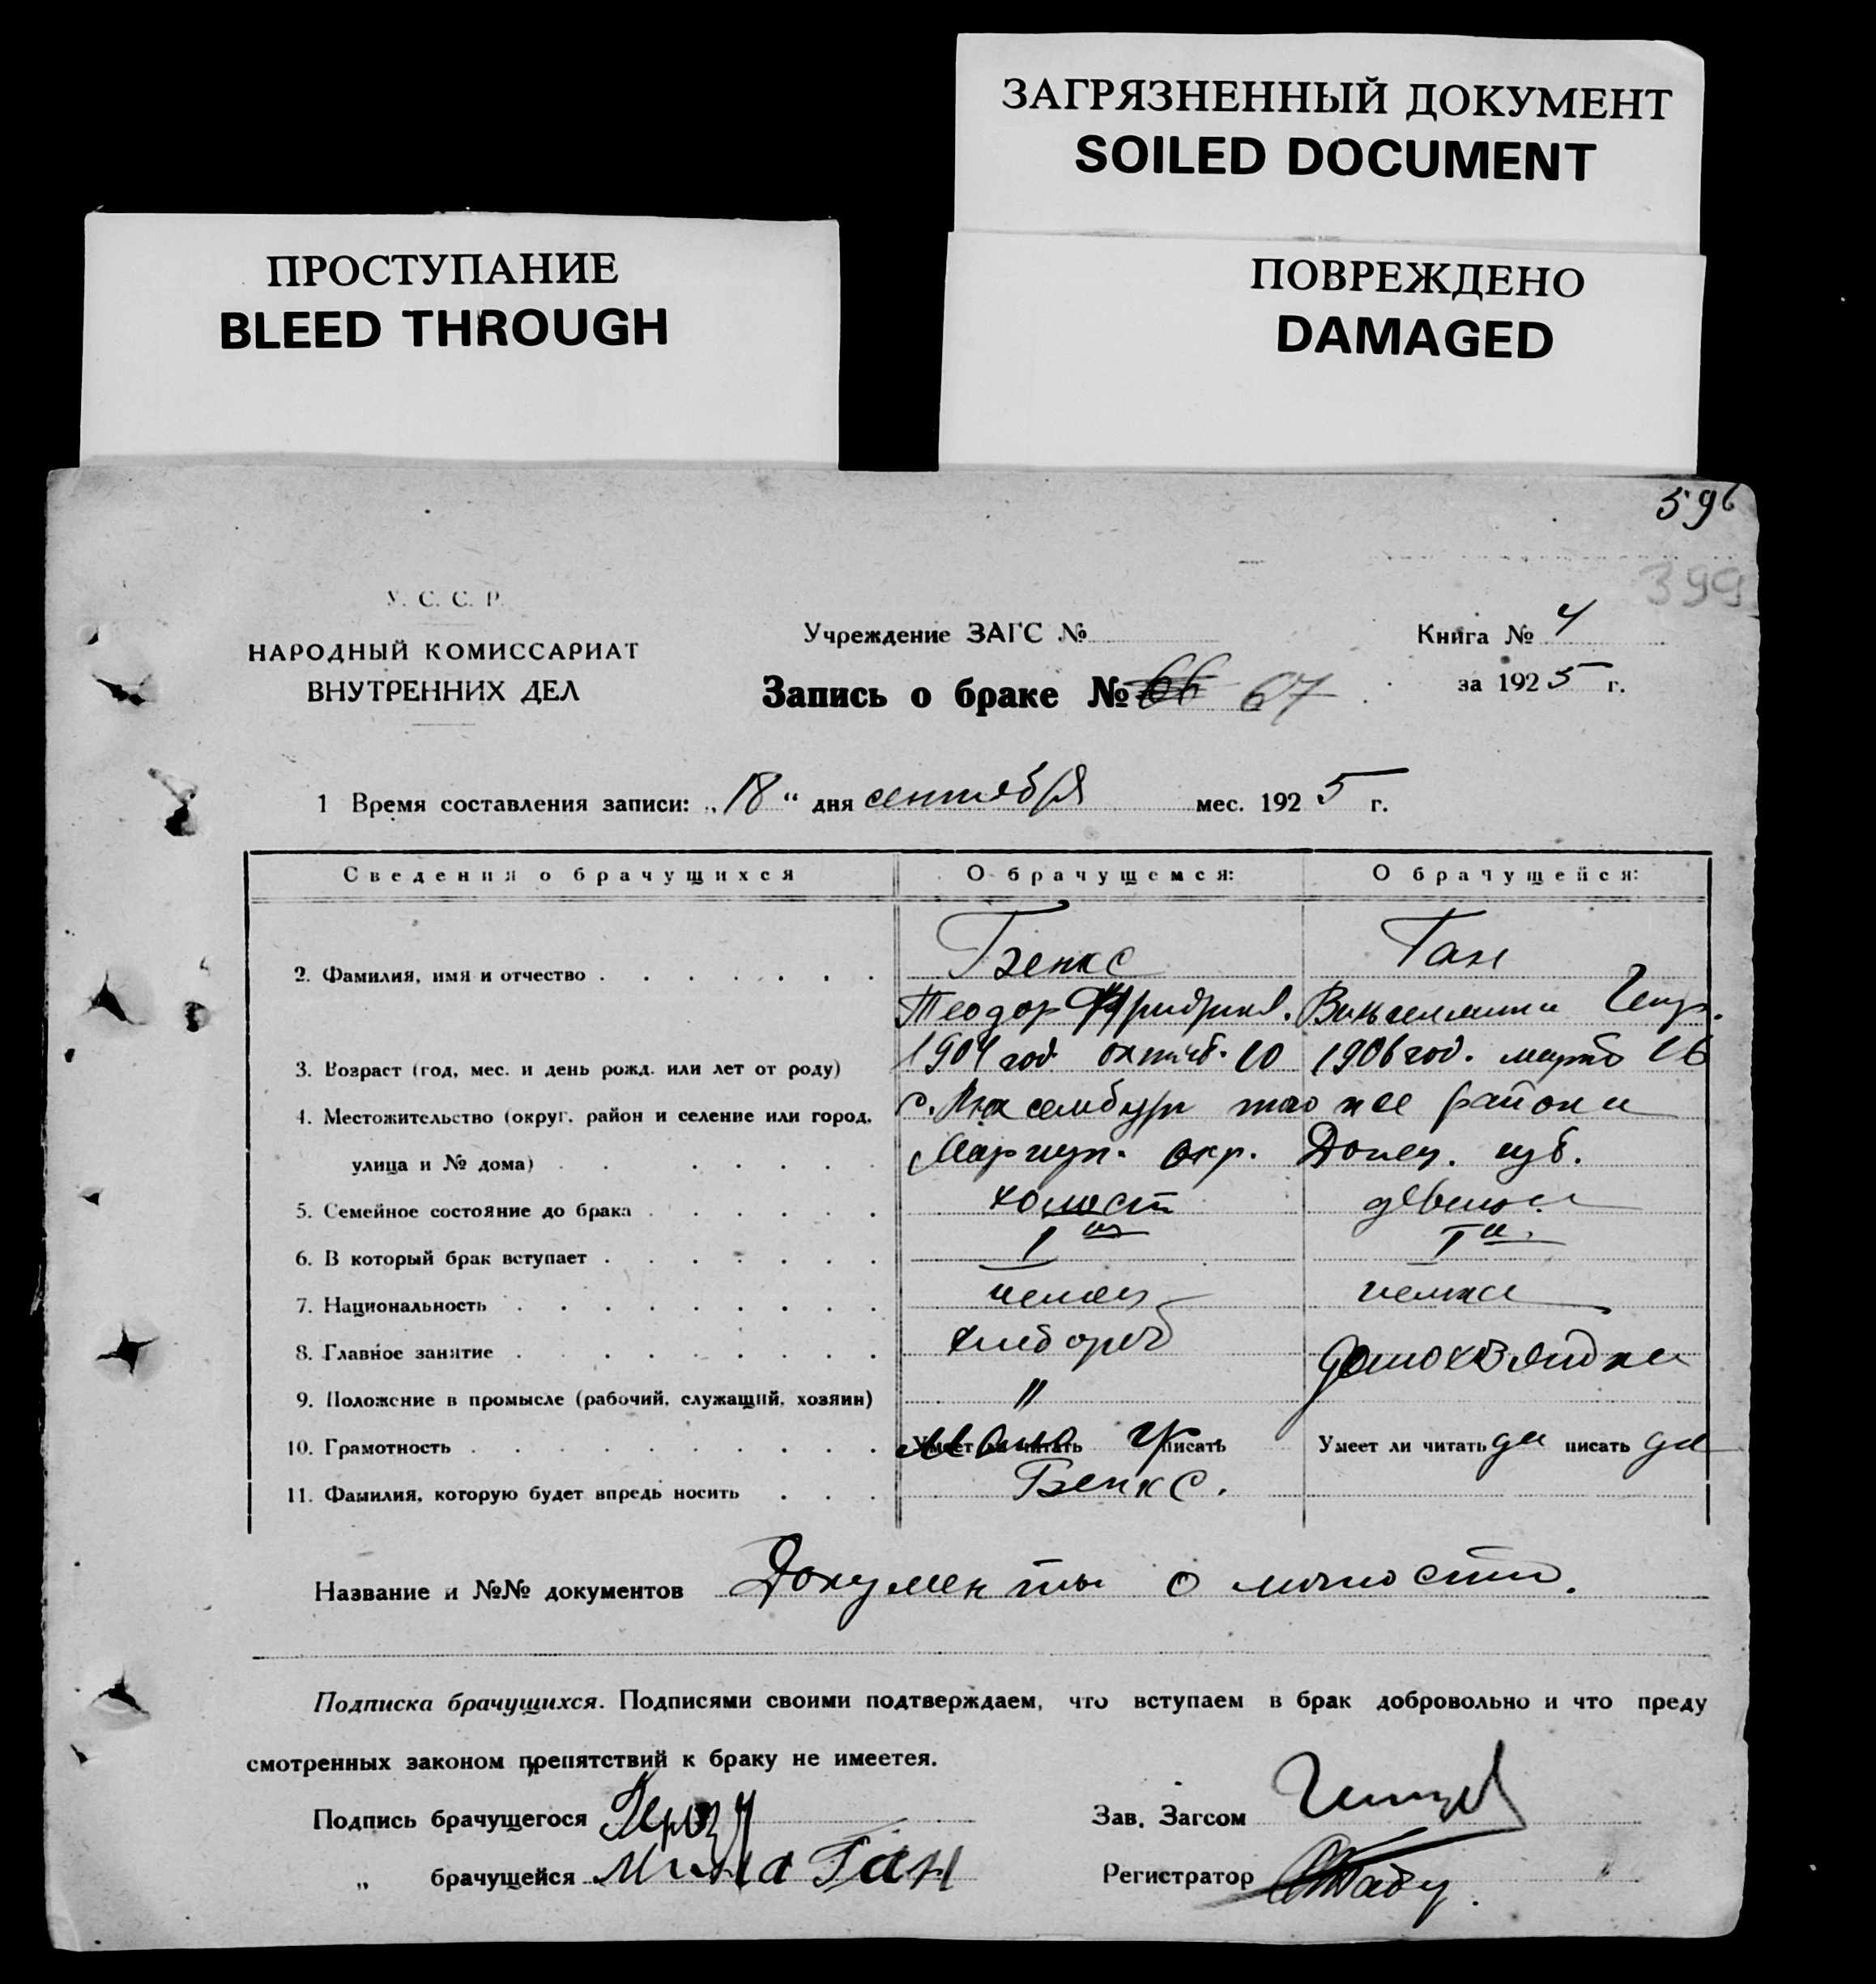 ЗАГРЯЗНЕННЫЙ ДОКУМЕНТ
SOILED DOCUMENT
ПРОСТУПАНИЕ
BLEED THROUGH
ПОВРЕЖДЕНО
DAMAGED
596
399
У. С. С. Р.
НАРОДНЫЙ КОМИССАРИАТ
ВНУТРЕННИХ ДЕЛ
Учреждение ЗАГС №
Книга № 4
Запись о браке № 66 67
за 1925 г.
1 Время составления записи: „18“ дня сентября мес. 1925 г.
Сведения о брачущихся О брачущемся: О брачущейся:
2. Фамилия, имя и отчество Бенкс Ган
Теодор Фридрихов. Вильгельмина Генр.
3. Возраст (год, мес. и день рожд. или лет от роду) 1904 год октяб. 10 1906 год. марта 16
4. Местожительство (округ, район и селение или город, с. Люксембург того же района
улица и № дома) Мариуп. окр. Донец. губ.
5. Семейное состояние до брака холост девица
6. В который брак вступает I ый I ый
7. Национальность немец немка
8. Главное занятие хлебороб домохозяйка
9. Положение в промысле (рабочий, служащий, хозяин) "
10. Грамотность Умеет ли читать писать Умеет ли читать да писать да
11. Фамилия, которую будет впредь носить Бенкс.
Название и №№ документов Документы о личности.
Подписка брачущихся. Подписями своими подтверждаем, что вступаем в брак добровольно и что преду
смотренных законом препятствий к браку не имеетея.
Подпись брачущегося
Зав. Загсом
„ брачущейся Мина Ган
Регистратор